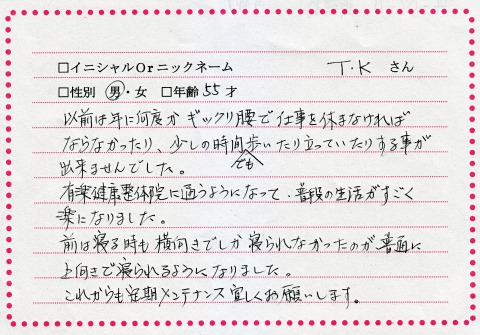 □イニシャルOrニックネーム T・K さん
□性別 男・女 □年齢 55 才
以前は年に何度かギックリ腰で仕事を休まなければ
ならなかったり、少しの時間でも歩いたり立っていたりする事が
出来ませんでした。
有楽健康整体院に通うようになって、普段の生活がすごく
楽になりました。
前は寝る時も横向きでしか寝られなかったのが普通に
上向きで寝られるようになりました。
これからも定期メンテナンス宜しくお願いします。